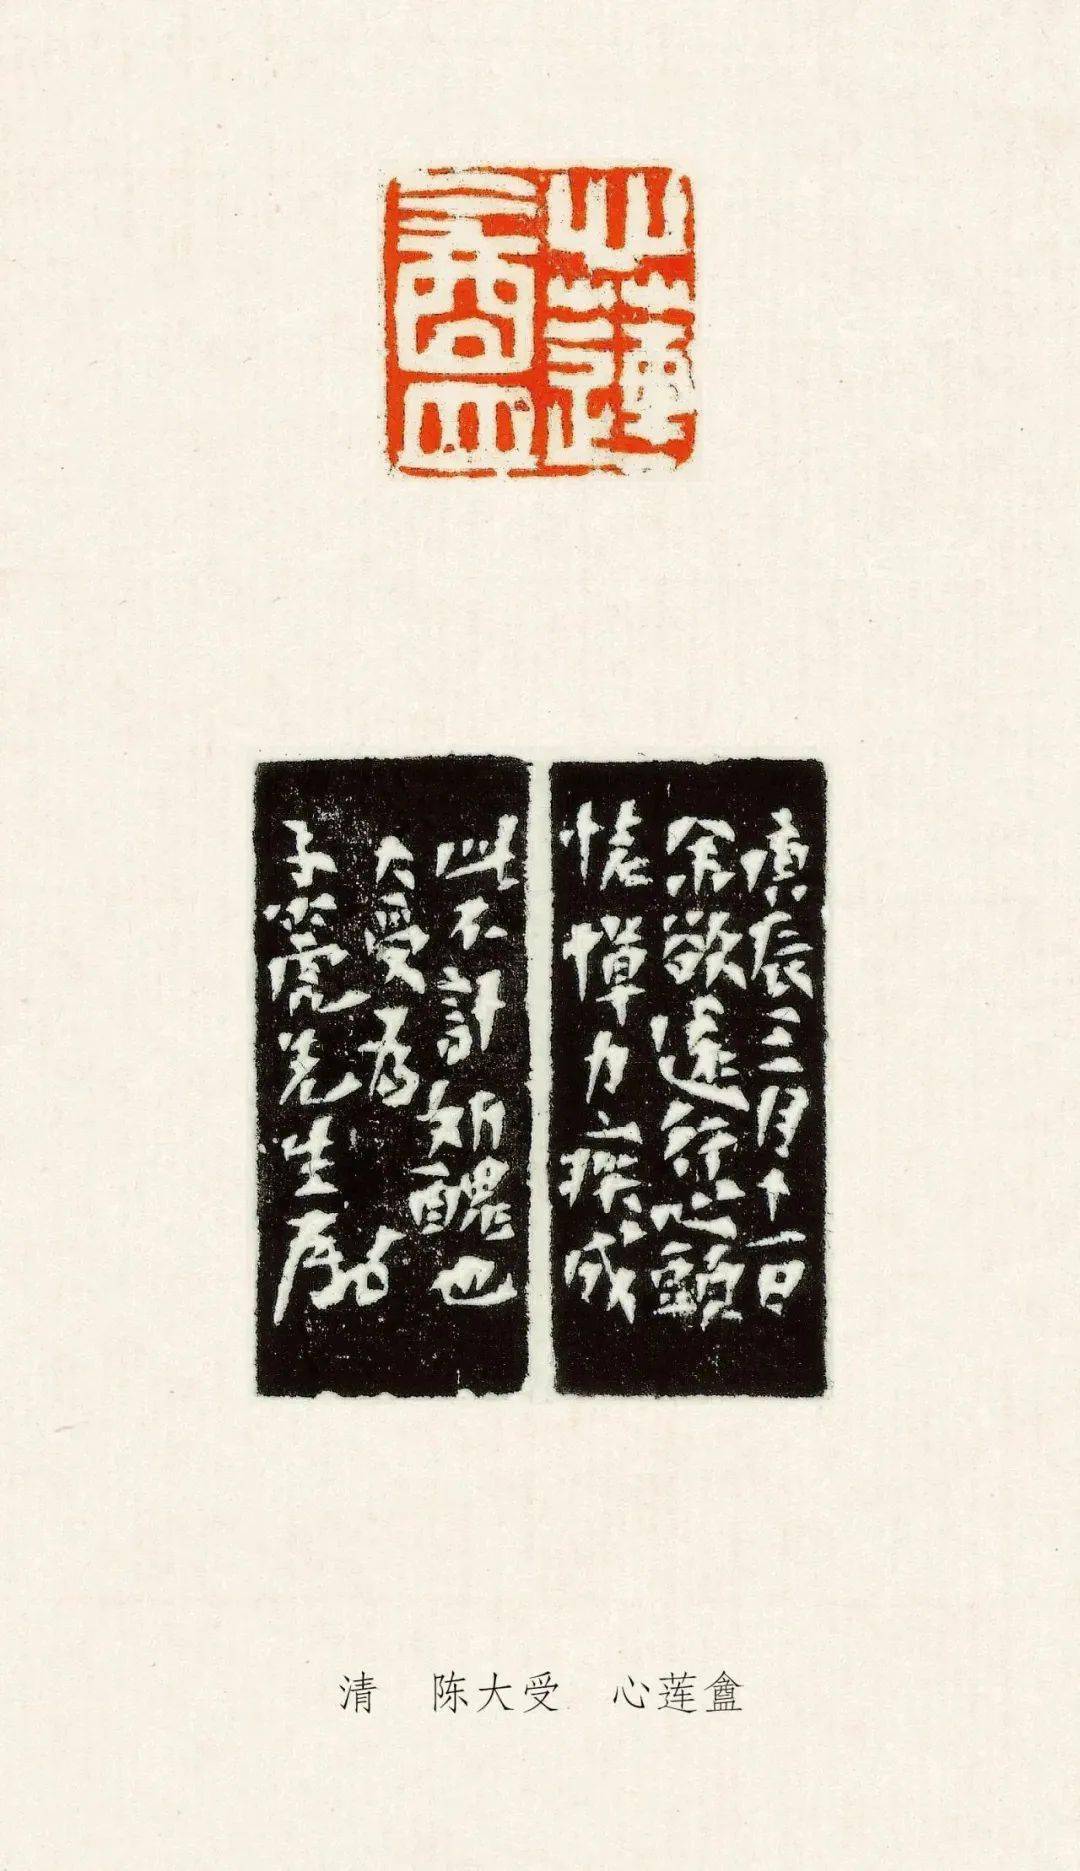 心蓮
盦
庚辰三月十一日
余欲遠行心頭
憚力疾成
此不計妍醜也
大受為
子先生屬
清 陈大受 心莲盦